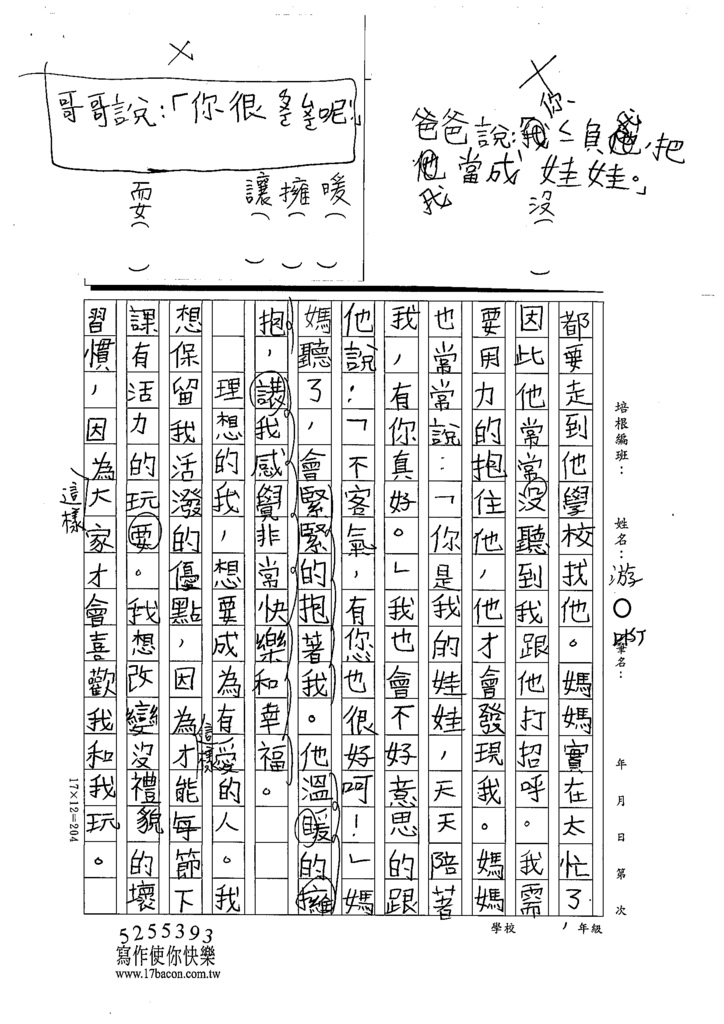 哥哥說：「你很ㄌㄠˊㄌㄠˊ呢！」
爸爸說：你ㄥˇ負我，把
我當成娃娃。」
沒（　）
暖（　）
擁（　）
讓（　）
耍（　）
培根編班：　姓名：游○　筆名：　年　月　日第　次
學校　年級
都要走到他學校找他。媽媽實在太忙了，
因此他常常沒聽到我跟他打招呼。我需
要用力的抱住他，他才會發現我。媽媽
也常常說：「你是我的娃娃，天天陪著
我，有你真好。」我也會不好意思的跟
他說：「不客氣，有您也很好呵！」媽
媽聽了，會緊緊的抱著我。他溫暖的擁
抱，讓我感覺非常快樂和幸福。
理想的我，想要成為有愛的人。我
想保留我活潑的優點，因為這樣才能每節下
課有活力的玩耍。我想改變沒禮貌的壞
習慣，因為這樣大家才會喜歡我和我玩。
17×12=204
5255393
寫作使你快樂
www.17bacon.com.tw